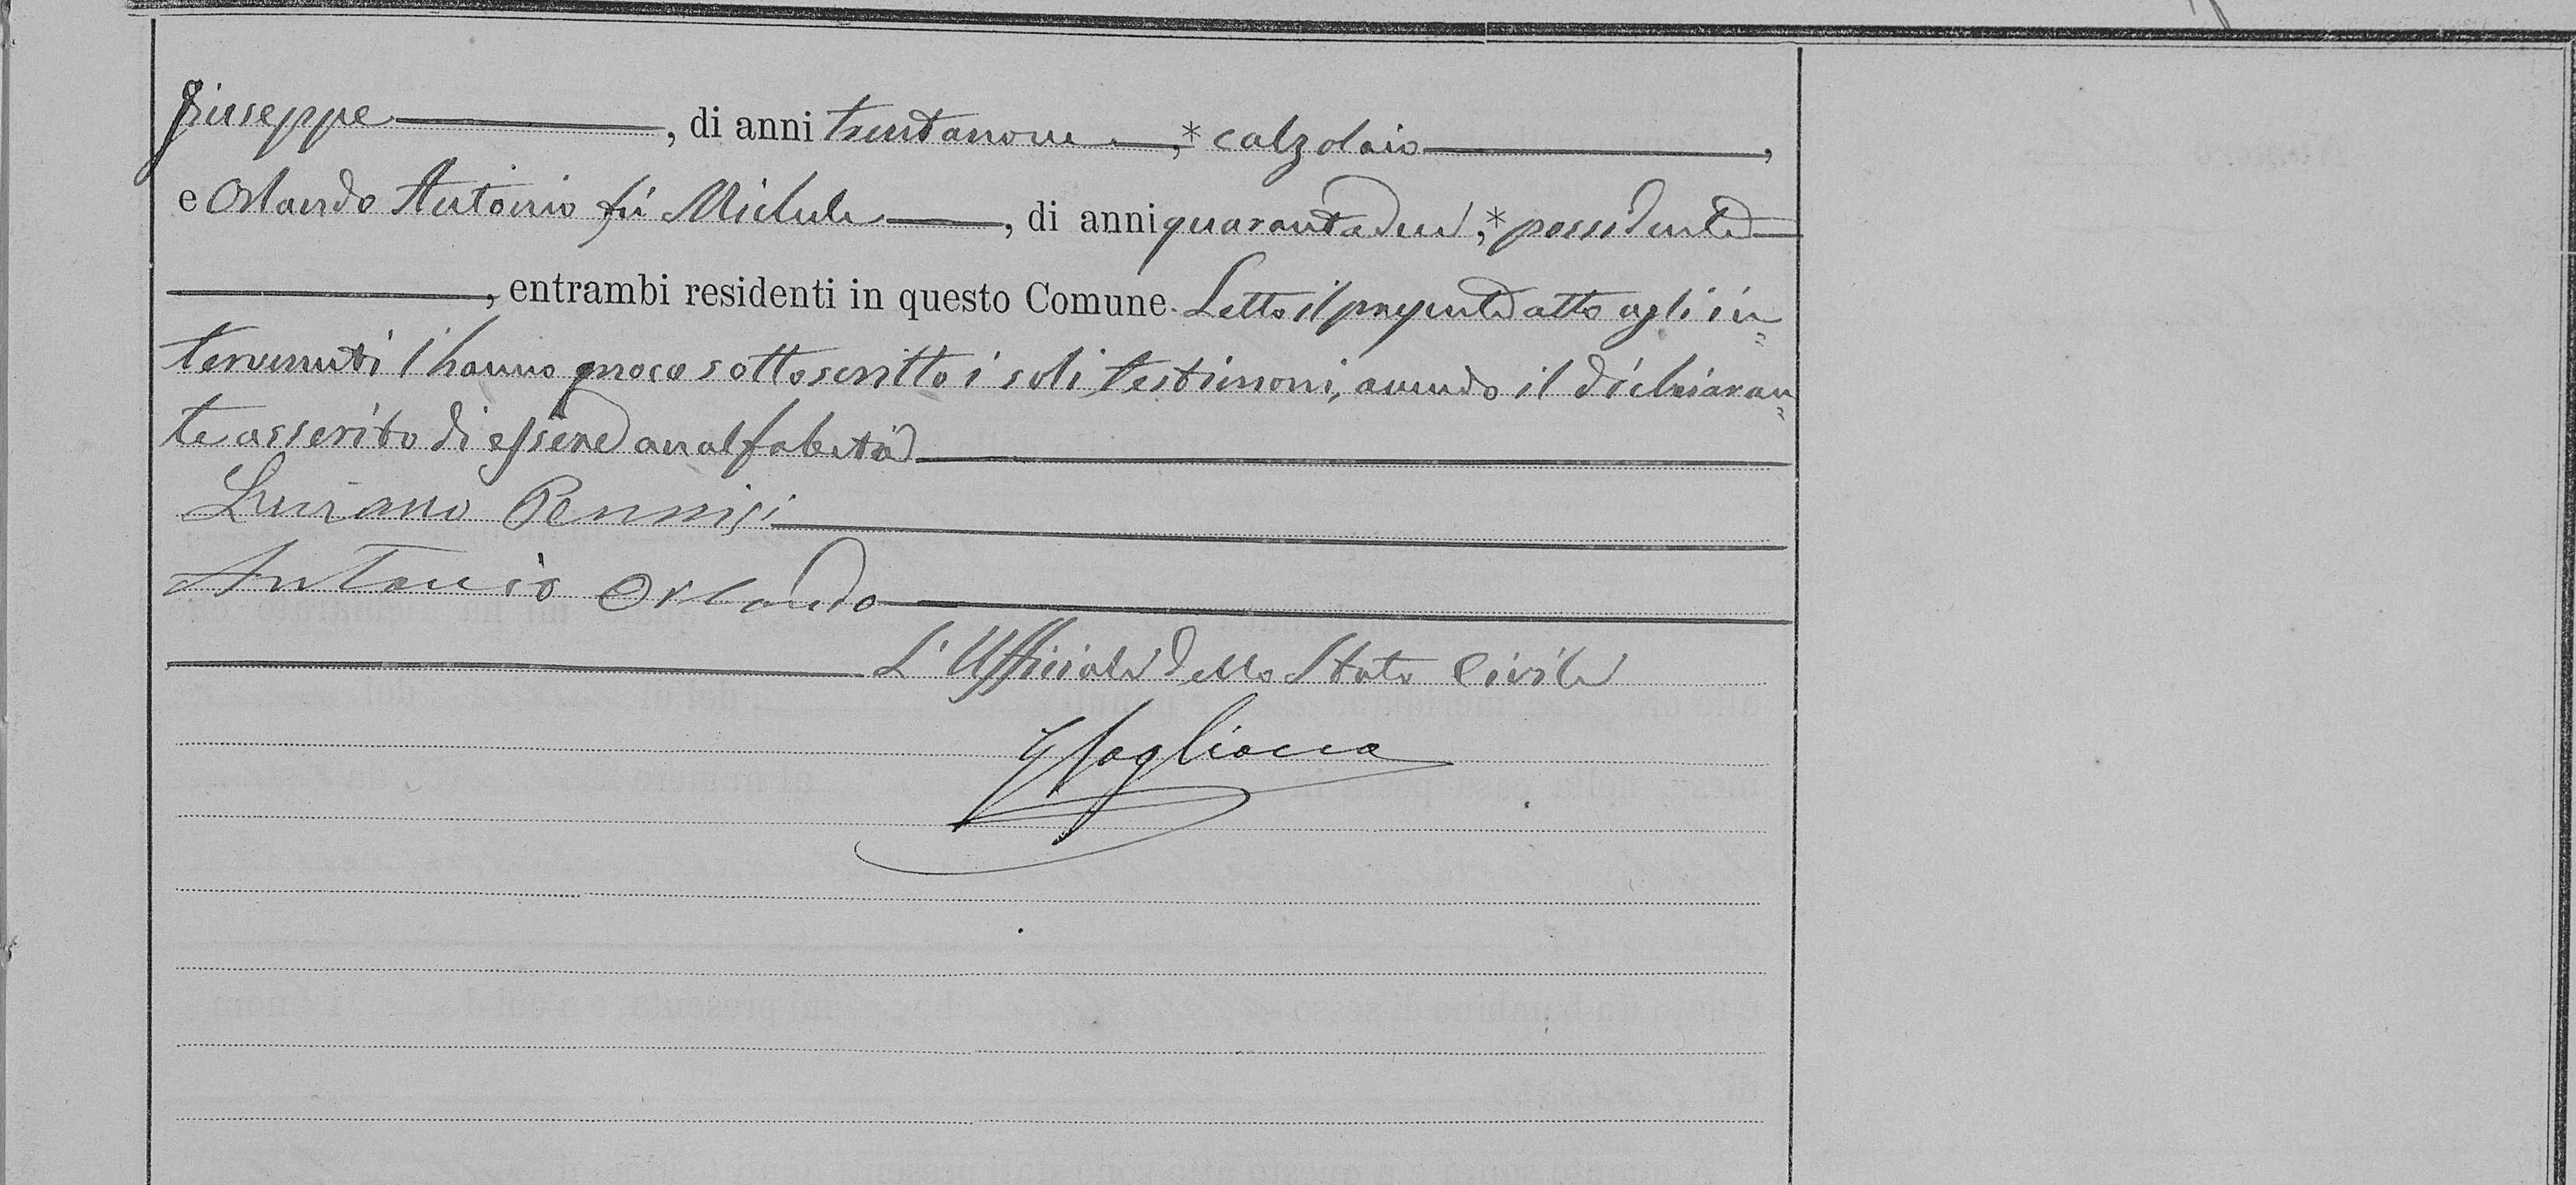 Giuseppe, di anni trentanove,* calzolaio,
e Orlando Antonio fu Michele, di anni quarantadue,* possidente
, entrambi residenti in questo Comune. Letto il presente atto agli in=
tervenuti l'hanno meco sottoscritto i soli testimoni, avendo il dichiaran=
te asserito di essere analfabeta
Luciano Pennisi
Antonio Orlando
L'Ufficiale dello Stato Civile